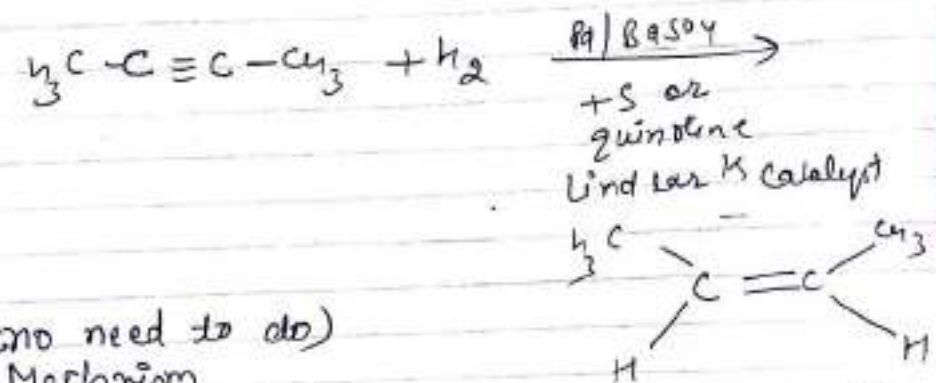 H₃C-C≡C-CH₃ + H₂ Pd/BaSO₄
+S or
quinoline
Lindlar's catalyst
H₃C CH₃
C=C
H H
(no need to do)
Mechanism